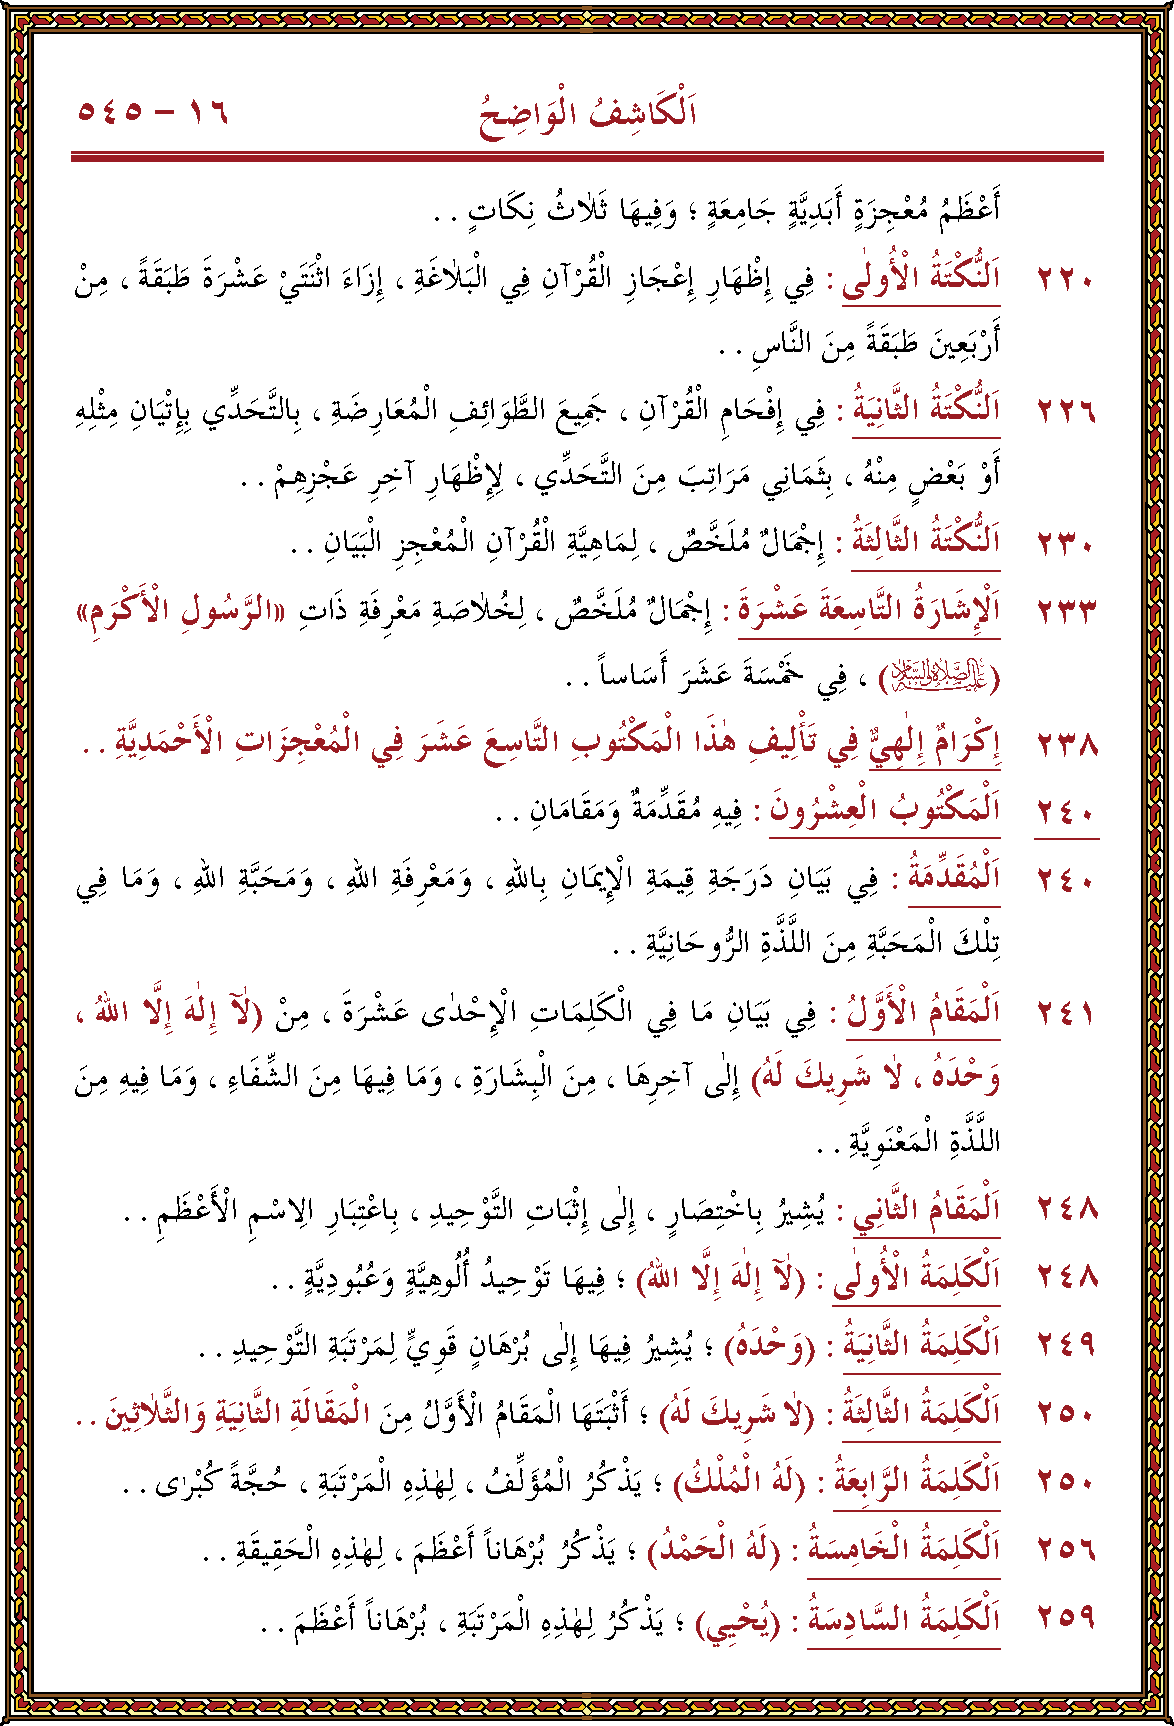 اَلْكَاشِفُ الْوَاضِحُ
١٦ – ٥٤٥
أَعْظَمُ مُعْجِزَةٍ أَبَدِيَّةٍ جَامِعَةٍ ؛ وَفِيهَا ثَلَاثُ نِكَاتٍ . .
٢٢٠ اَلنُّكْتَةُ الْأُولٰى : فِي إِظْهَارِ إِعْجَازِ الْقُرْآنِ فِي الْبَلَاغَةِ ، إِزَاءَ اثْنَتَيْ عَشْرَةَ طَبَقَةً ، مِنْ
أَرْبَعِينَ طَبَقَةً مِنَ النَّاسِ . .
٢٢٦ اَلنُّكْتَةُ الثَّانِيَةُ : فِي إِفْحَامِ الْقُرْآنِ ، جَمِيعَ الطَّوَائِفِ الْمُعَارِضَةِ ، بِالتَّحَدِّي بِإِتْيَانِ مِثْلِهِ
أَوْ بَعْضٍ مِنْهُ ، بِثَمَانِي مَرَاتِبَ مِنَ التَّحَدِّي ، لِإِظْهَارِ آخِرِ عَجْزِهِمْ . .
٢٣٠ اَلنُّكْتَةُ الثَّالِثَةُ : إِجْمَالٌ مُلَخَّصٌ ، لِمَاهِيَّةِ الْقُرْآنِ الْمُعْجِزِ الْبَيَانِ . .
٢٣٣ اَلْإِشَارَةُ التَّاسِعَةَ عَشْرَةَ : إِجْمَالٌ مُلَخَّصٌ ، لِخُلَاصَةِ مَعْرِفَةِ ذَاتِ «الرَّسُولِ الْأَكْرَمِ»
(عَلَيْهِ الصَّلَاةُ وَالسَّلَامُ) ، فِي خَمْسَةَ عَشَرَ أَسَاساً . .
٢٣٨ إِكْرَامٌ إِلٰهِيٌّ فِي تَأْلِيفِ هٰذَا الْمَكْتُوبِ التَّاسِعَ عَشَرَ فِي الْمُعْجِزَاتِ الْأَحْمَدِيَّةِ . .
٢٤٠ اَلْمَكْتُوبُ الْعِشْرُونَ : فِيهِ مُقَدِّمَةٌ وَمَقَامَانِ . .
٢٤٠ اَلْمُقَدِّمَةُ : فِي بَيَانِ دَرَجَةِ قِيمَةِ الْإِيمَانِ بِاللهِ ، وَمَعْرِفَةِ اللهِ ، وَمَحَبَّةِ اللهِ ، وَمَا فِي
تِلْكَ الْمَحَبَّةِ مِنَ اللَّذَّةِ الرُّوحَانِيَّةِ . .
٢٤١ اَلْمَقَامُ الْأَوَّلُ : فِي بَيَانِ مَا فِي الْكَلِمَاتِ الْإِحْدٰى عَشْرَةَ ، مِنْ (لَآ إِلٰهَ إِلَّا اللهُ ،
وَحْدَهُ ، لَا شَرِيكَ لَهُ) إِلٰى آخِرِهَا ، مِنَ الْبِشَارَةِ ، وَمَا فِيهَا مِنَ الشِّفَاءِ ، وَمَا فِيهِ مِنَ
اللَّذَّةِ الْمَعْنَوِيَّةِ . .
٢٤٨ اَلْمَقَامُ الثَّانِي : يُشِيرُ بِاخْتِصَارٍ ، إِلٰى إِثْبَاتِ التَّوْحِيدِ ، بِاعْتِبَارِ الِاسْمِ الْأَعْظَمِ . .
٢٤٨ اَلْكَلِمَةُ الْأُولٰى : (لَآ إِلٰهَ إِلَّا اللهُ) ؛ فِيهَا تَوْحِيدُ أُلُوهِيَّةٍ وَعُبُودِيَّةٍ . .
٢٤٩ اَلْكَلِمَةُ الثَّانِيَةُ : (وَحْدَهُ) ؛ يُشِيرُ فِيهَا إِلٰى بُرْهَانٍ قَوِيٍّ لِمَرْتَبَةِ التَّوْحِيدِ . .
٢٥٠ اَلْكَلِمَةُ الثَّالِثَةُ : (لَا شَرِيكَ لَهُ) ؛ أَثْبَتَهَا الْمَقَامُ الْأَوَّلُ مِنَ الْمَقَالَةِ الثَّانِيَةِ وَالثَّلَاثِينَ . .
٢٥٠ اَلْكَلِمَةُ الرَّابِعَةُ : (لَهُ الْمُلْكُ) ؛ يَذْكُرُ الْمُؤَلِّفُ ، لِهٰذِهِ الْمَرْتَبَةِ ، حُجَّةً كُبْرٰى . .
٢٥٦ اَلْكَلِمَةُ الْخَامِسَةُ : (لَهُ الْحَمْدُ) ؛ يَذْكُرُ بُرْهَاناً أَعْظَمَ ، لِهٰذِهِ الْحَقِيقَةِ . .
٢٥٩ اَلْكَلِمَةُ السَّادِسَةُ : (يُحْيِي) ؛ يَذْكُرُ لِهٰذِهِ الْمَرْتَبَةِ ، بُرْهَاناً أَعْظَمَ . .